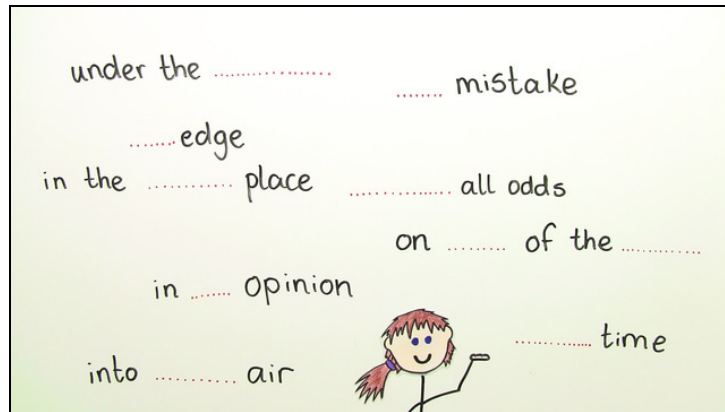 under the ..................
........ mistake
....... edge
in the ............ place
............... all odds
on ......... of the ............
in ....... opinion
............. time
into ............ air